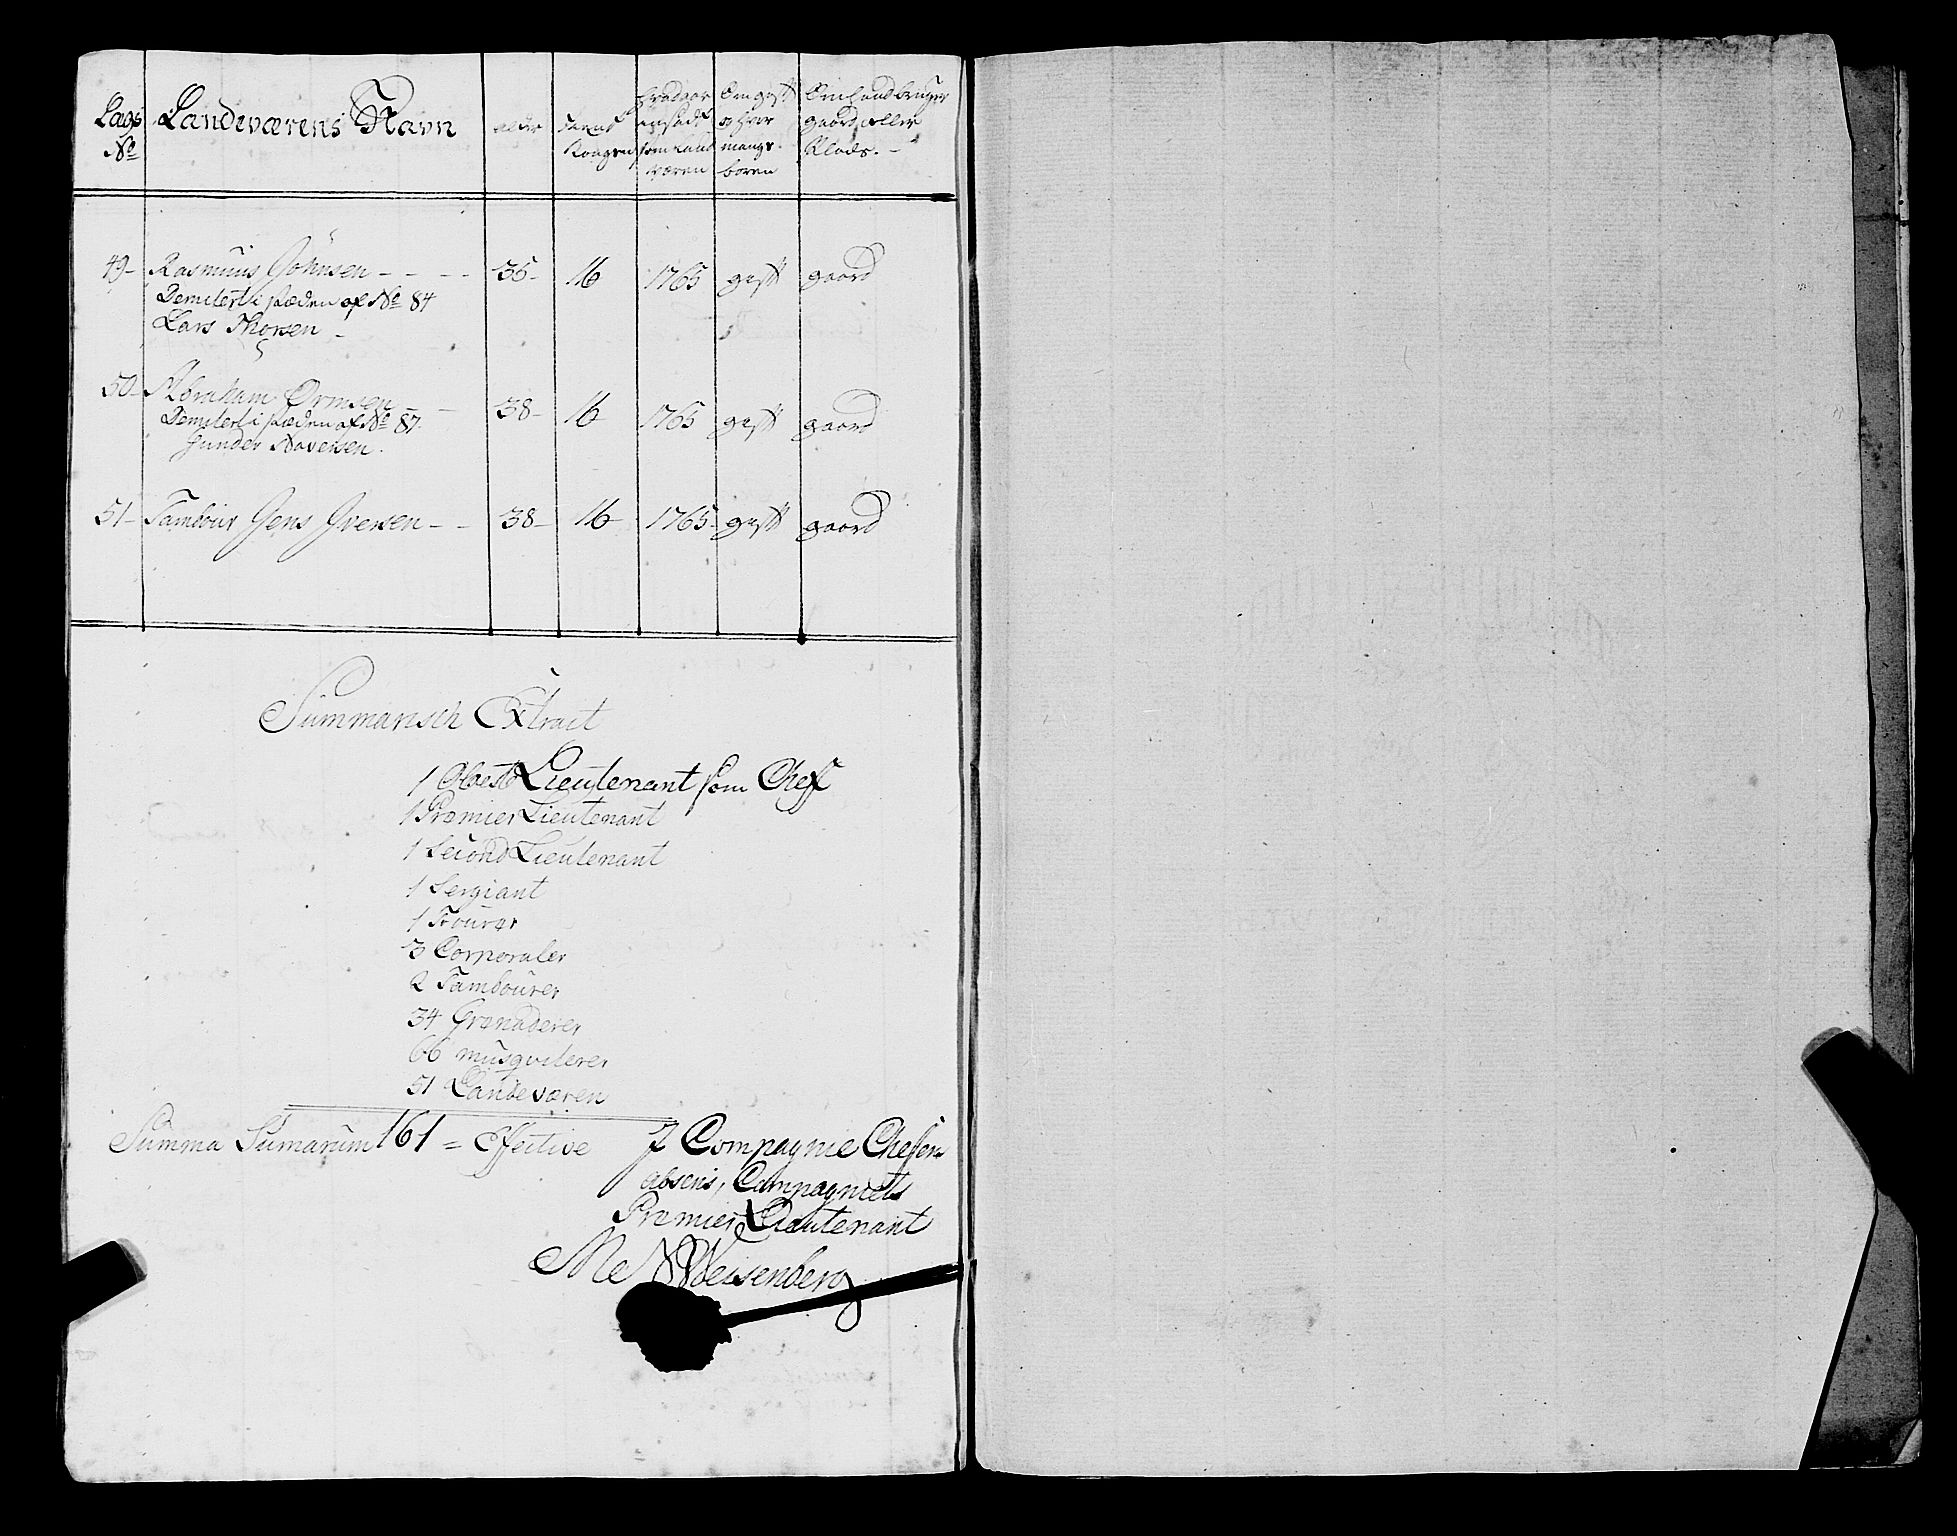 Lægs No Landeværens Navn alder tient Kongen hvad aar ansadt som Land væren Om gift og hvor mange boren Om hand bruger gaard eller Plads. -
49- Rasmus Johnsen - - - - 35- 16 1765 gift gaard
Demitert i stæden af No 84
Lars Thorsen -
50- Abraham Ormsen - 38- 16 1765 gift gaard
Demitert i stæden af No 87.
Gunder Naversen.
51- Tambour Jens Iversen - - 38- 16 1765- gift gaard
Summarisch Extract
1 Obest Lieutenant som Chef
1 Premier Lieutenant
1 Second Lieutenant
1 Sergiant
1 Fourer
3 Corporaler
2 Tambourer
34 Grenaderer
66 musqveterer
51 Landeværen
Summa Sumarum 161 = Effective
J Compagnie Chefens
absens, Compagniets
Premier Lieutenant
Weisenberg